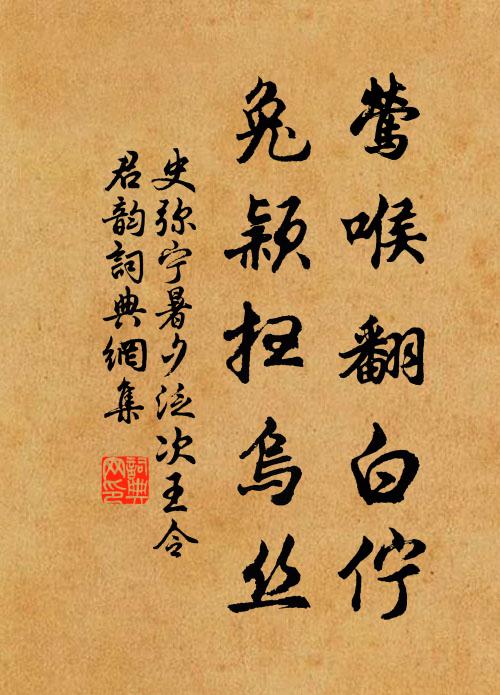 莺喉翻白佇
兔颖扫乌丝
史弥宁暑夕泛次王令
君韵詞典網集
詞典